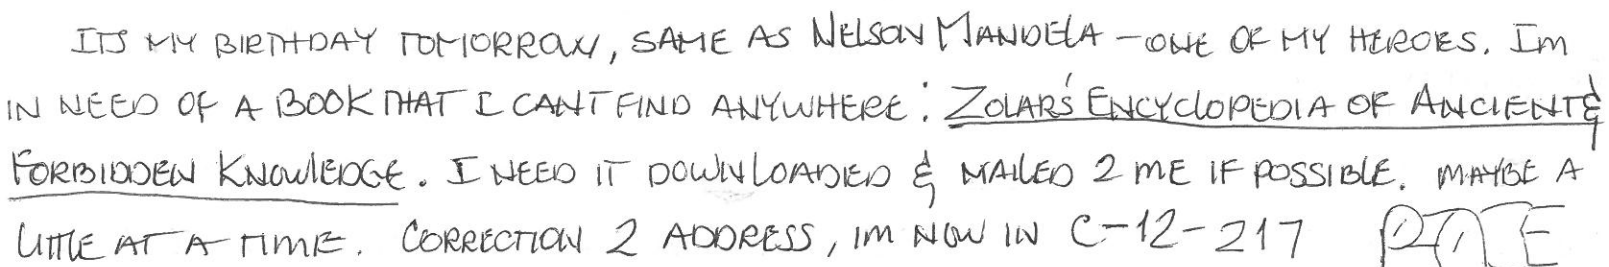 ITS MY BIRTHDAY TOMORROW, SAME AS NELSON MANDELA - ONE OF MY HEROES. IM
IN NEED OF A BOOK THAT I CANT FIND ANYWHERE: ZOLAR'S ENCYCLOPEDIA OF ANCIENT &
FORBIDDEN KNOWLEDGE. I NEED IT DOWNLOADED & MAILED 2 ME IF POSSIBLE. MAYBE A
LITTLE AT A TIME. CORRECTION 2 ADDRESS, IM NOW IN C-12-217